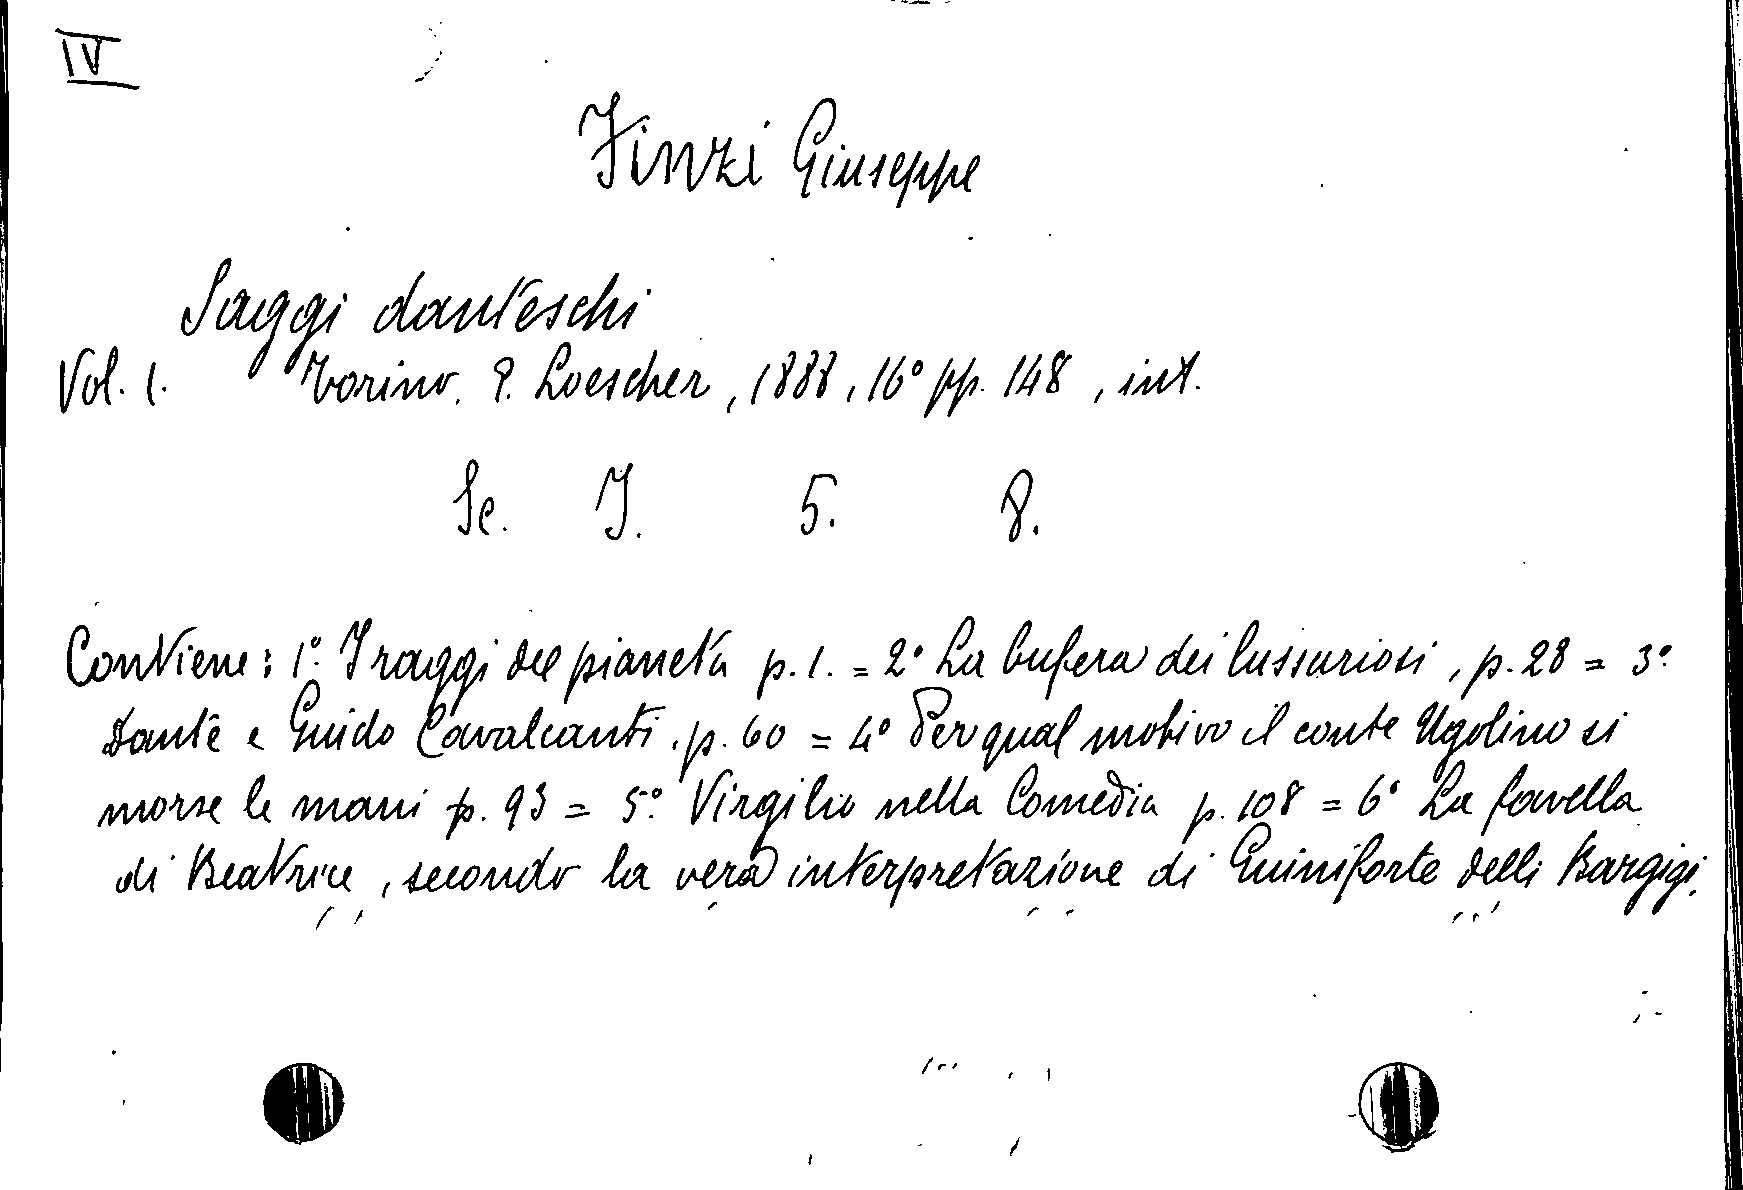 IV
Finzi Giuseppe
Saggi danteschi
Vol. 1. Torino. E. Loescher, 1888, 16° pp. 148, int.
Se. I. 5. 8.
Contiene: 1°. I raggi del pianeta p. 1. = 2° La bufera dei lussuriosi, p. 28 = 3°.
Dante e Guido Cavalcanti. p. 60 = 4° Per qual motivo il conte Ugolino si
morse le mani p. 93 = 5°. Virgilio nella Comedia p. 108 = 6° La favella
di Beatrice, secondo la vera interpretazione di Guiniforte delli Bargigi.